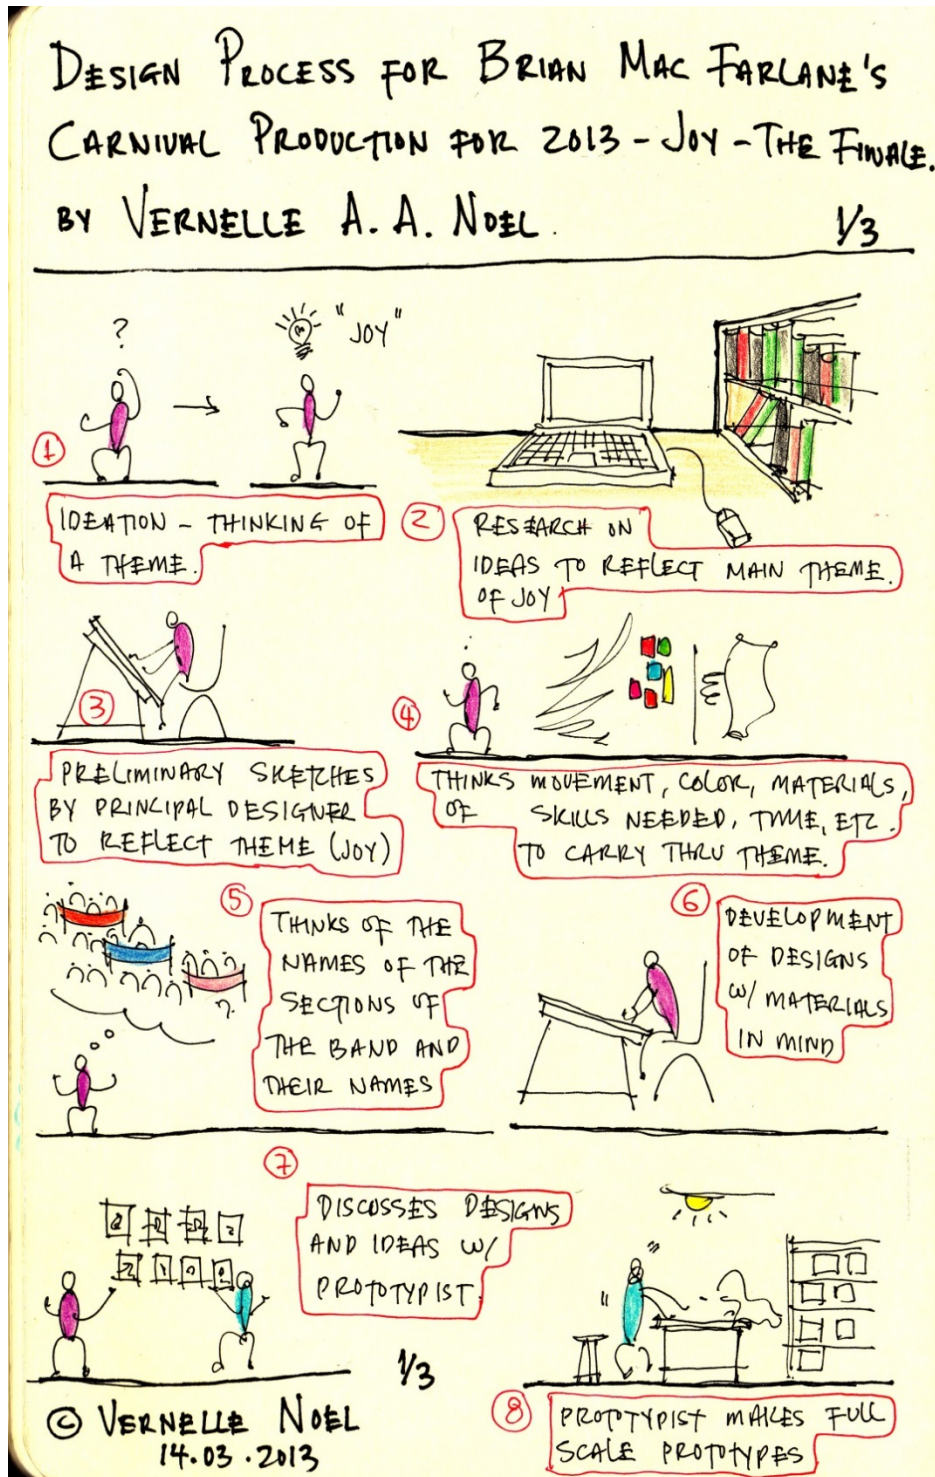 DESIGN PROCESS FOR BRIAN MAC FARLANE'S
CARNIVAL PRODUCTION FOR 2013 - JOY - THE FINALE.
BY VERNELLE A. A. NOEL. 1/3
?
"JOY"
1
IDEATION - THINKING OF
A THEME.
2
RESEARCH ON
IDEAS TO REFLECT MAIN THEME.
OF JOY
3
PRELIMINARY SKETCHES
BY PRINCIPAL DESIGNER
TO REFLECT THEME (JOY)
4
THINKS MOVEMENT, COLOR, MATERIALS,
OF SKILLS NEEDED, TIME, ETC.
TO CARRY THRU THEME.
5
THINKS OF THE
NAMES OF THE
SECTIONS OF
THE BAND AND
THEIR NAMES
6
DEVELOPMENT
OF DESIGNS
W/ MATERIALS
IN MIND
7
DISCUSSES DESIGNS
AND IDEAS W/
PROTOTYPIST.
8
PROTOTYPIST MAKES FULL
SCALE PROTOTYPES
1/3
© VERNELLE NOEL
14.03.2013